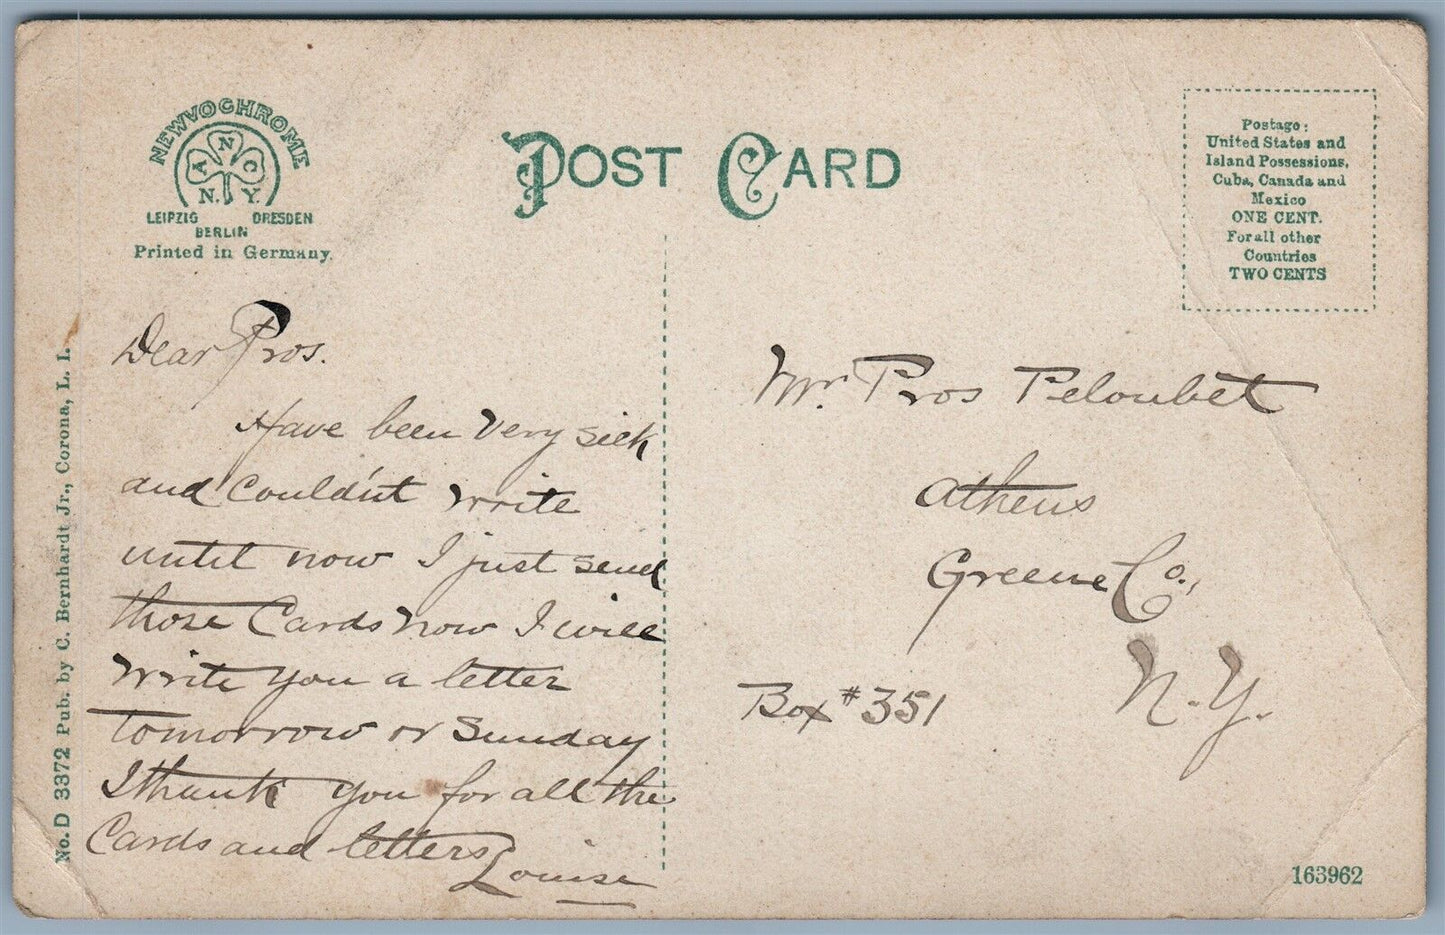 NEWVOCHROME
A N C
N. Y.
LEIPZIG DRESDEN
BERLIN
Printed in Germany.
POST CARD
Postage:
United States and
Island Possessions,
Cuba, Canada and
Mexico
ONE CENT.
For all other
Countries
TWO CENTS
Dear Pros.
Have been very sick
and couldn't write
until now I just send
those Cards now I will
write you a letter
tomorrow or Sunday
I thank you for all the
Cards and letters
Louise
Mr. Pros Peloubet
Athens
Greene Co.,
N.Y.
Box #351
No. D 3372 Pub. by C. Bernhardt Jr., Corona, L. I.
163962